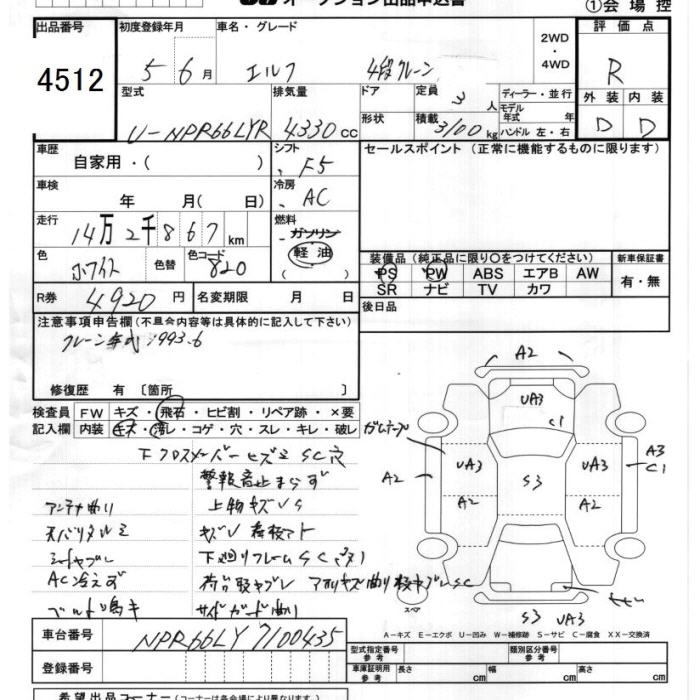 オークション出品申込書
①会場控
出品番号 初度登録年月 車名・グレード 評価点
4512 5年6月 エルフ 4段クレーン 2WD・4WD R
型式 排気量 ドア 定員 ディーラー・並行 外装 内装
U-NPR66LYR 4330cc 3人 モデル年式 年 D D
形状 積載 3100kg ハンドル 左・右
車歴 シフト セールスポイント(正常に機能するものに限ります)
自家用・( ) F5
車検 冷房
年 月(日) AC
走行 燃料
14万2千867km ガソリン 軽油
色 色替 色コード 装備品(純正品に限り○をつけてください) 新車保証書
ホワイト 820 PS PW ABS エアB AW 有・無
SR ナビ TV カワ
R券 4,920円 名変期限 月 日 後日品
注意事項申告欄(不具合内容等は具体的に記入して下さい)
クレーン年式 1993.6
修復歴 有 〔箇所
検査員 FW キズ・飛石・ヒビ割・リペア跡・×要
記入欄 内装 キズ・汚レ・コゲ・穴・スレ・キレ・破レ
ガムテープ
下フロスメーバーヒズミSC穴
警報音止まらず
アンテナ曲り 上物キズUS
キズU 看板アト
シートヤブレ 下廻りフレームSC
AC冷えず
ベルト鳴キ サイドガード曲り
A2
UA3
C1
UA3 S3 UA3 A3
C1
A2 A2 A2
スペア
S3 UA3
A-キズ E-エクボ U-凹み W-補修跡 S-サビ C-腐食 XX-交換済
車台番号 NPR66LY7100435
登録番号
型式指定番号 参考 類別区分番号 参考
車庫証明用 参考 長さ cm 幅 cm 高さ cm
希望出品コーナー(コーナーは各会場により異なります。)